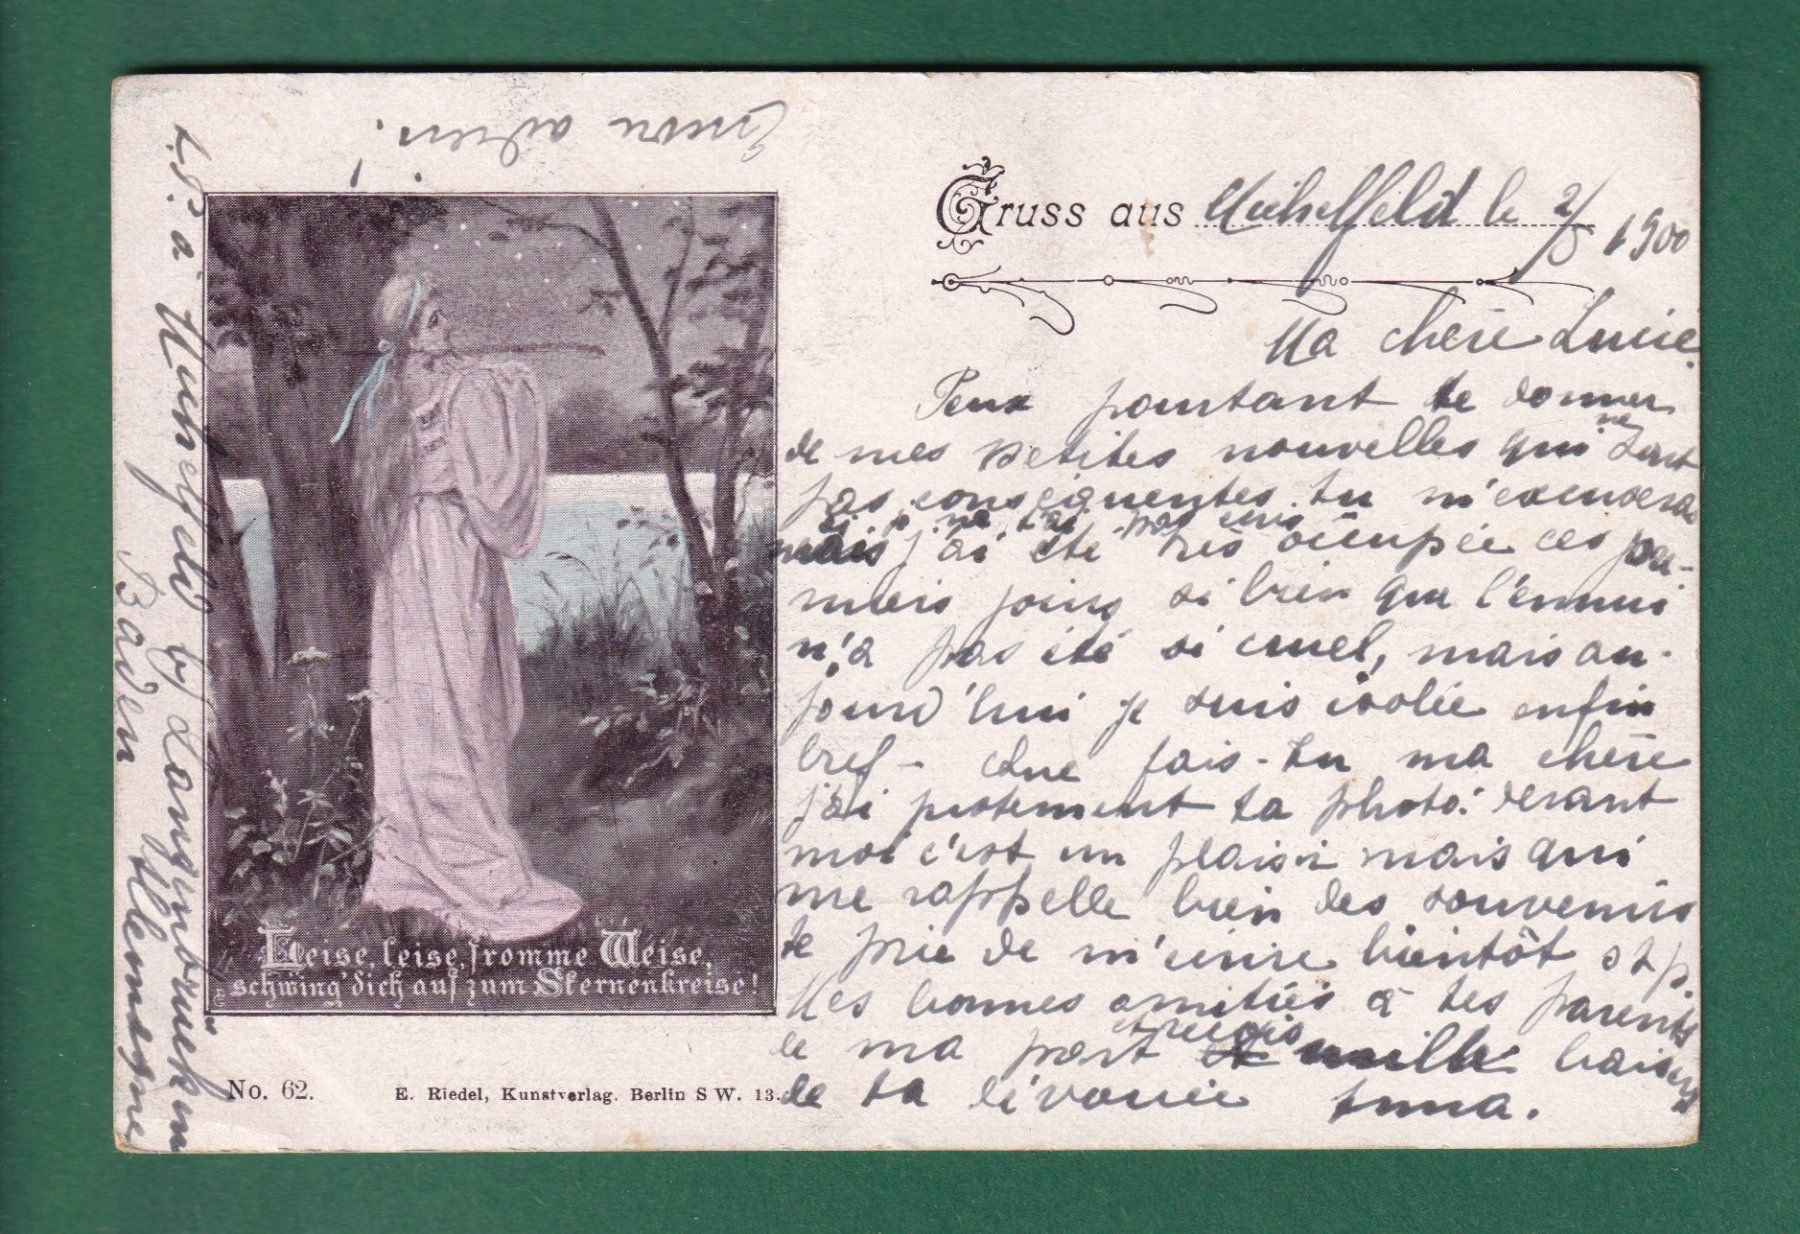 Encore adieu!
Gruss aus Michelfeld le 2/5 1900
Ma chère Lucie
Peux pourtant te donner
de mes petites nouvelles qui ne sont
pas conséquentes, tu m'excuseras
si je ne t'ai pas écris
mais j'ai été très occupée ces pre-
miers jours si bien que l'ennui
n'a pas été si cruel, mais au-
jourd'hui je suis isolée enfin
bref - Que fais-tu ma chère
j'ai justement ta photo. devant
moi c'est un plaisir mais qui
me rappelle bien des souvenirs
te prie de m'écrire bientôt stp.
Mes bonnes amitiés à tes parents
de ma part et reçois mille baisers
de ta dévouée Anna.
Leise, leise, fromme Weise,
schwing' dich auf zum Sternenkreise!
No. 62. E. Riedel, Kunstverlag. Berlin S W. 13.
à Michelfeld by Langenbrücken
Baden Allemagne